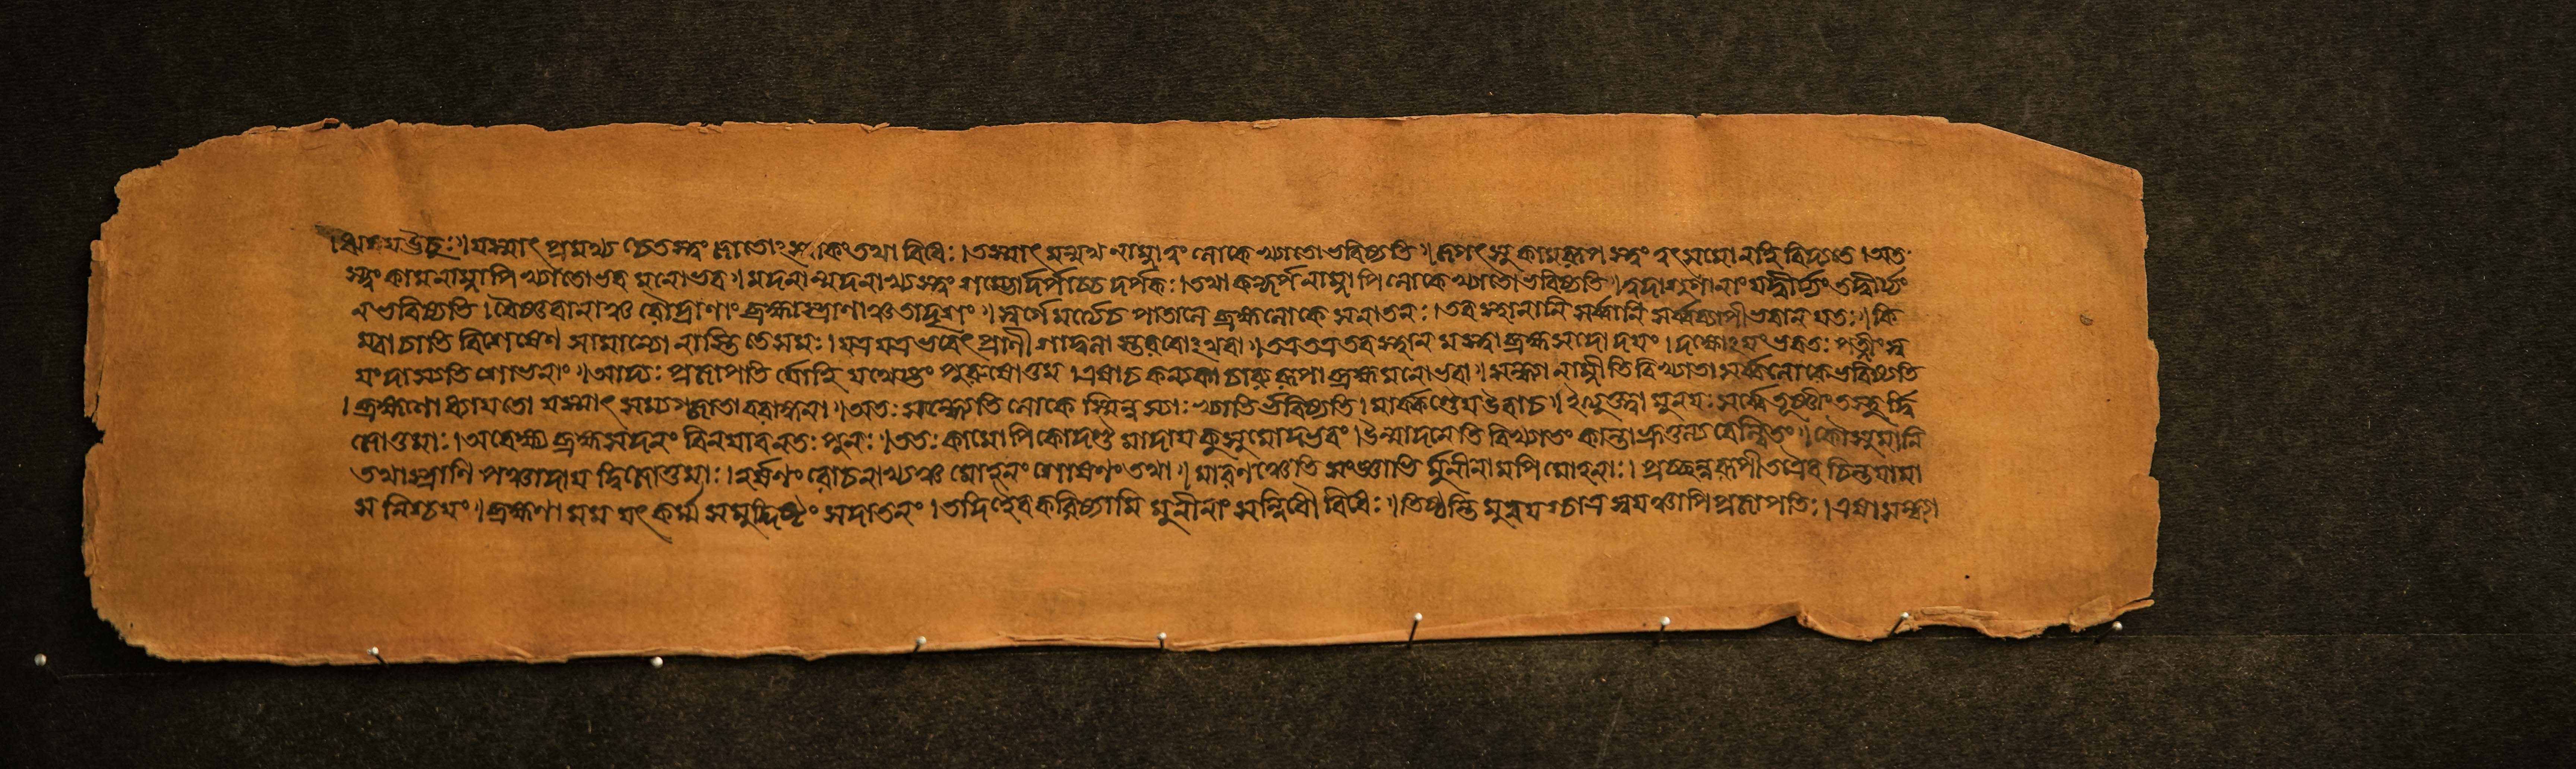 ।ঋষয়ঊচুঃ॥যস্মাৎ প্রমথ্য চেতস্ত্বং জাতোঽস্মাকং তথা বিধেঃ।তস্মাৎ মন্মথ নাম্নাত্বং লোকে খ্যাতো ভবিষ্যতি॥জগৎসু কামরূপ স্ত্বং ত্বৎসমো নহি বিদ্যতে।অত
স্ত্বং কামনাম্নাপি খ্যাতো ভব মনোভব॥মদনান্মদনাখ্যস্ত্বং শম্ভোর্দর্পাচ্চ দর্পকঃ।তথা কন্দর্পনাম্নাপি লোকে খ্যাতো ভবিষ্যতি॥ত্বদাশুগানাং যদ্বীর্য্যং তদ্বীর্য্যং
ন ভবিষ্যতি।বৈষ্ণবানাঞ্চ রৌদ্রাণাং ব্রহ্মাস্ত্রাণাঞ্চ তাদৃশং॥স্বর্গে মর্ত্যেচ পাতালে ব্রহ্মলোকে সনাতনঃ।তব স্থানানি সর্ব্বানি সর্ব্বব্যাপী ভবান যতঃ॥কি
ম্বা চাতি বিশেষেণ সামান্যো নাস্তি তে সমঃ।যত্র যত্র ভবেৎ প্রাণী শাদ্বলা স্তরবোঽথবা॥তত্র তত্র তব স্থান মস্ত্বা ব্রহ্মসদোদয়ং।দক্ষোঽয়ং ভবতঃ পত্নীং স্ব
য়ং দাস্যতি শোভনাং॥আদ্যঃ প্রজাপতি র্যোহি যথেষ্টং পুরুষোত্তম।এষাচ কন্যকা চারুরূপা ব্রহ্মমনোভবা॥সন্ধ্যা নাম্নীতি বিখ্যাতা সর্ব্বলোকে ভবিষ্যতি
।ব্রহ্মণো ধ্যায়তো যস্মাৎ সম্যগ্জাতা বরাঙ্গনা॥অতঃ সন্ধ্যেতি লোকে স্মিন্নস্যাঃ খ্যাতির্ভবিষ্যতি।মার্কণ্ডেয়উবাচ॥ইত্যুক্ত্বা মুনয়ঃ সর্ব্বে তূষ্ণীং তস্থুর্দ্বি
জোত্তমাঃ।অবেক্ষ্য ব্রহ্মসদনং বিনয়াবনতঃ পুনঃ॥ততঃ কামোপি কোদণ্ড মাদায় কুসুমোদ্ভবং।উন্মাদনেতি বিখ্যাতং কান্তাভ্রূতুল্য বেল্লিতং॥কৌসুমানি
তথাস্ত্রাণি পঞ্চাদায় দ্বিজোত্তমাঃ।হর্ষণং রোচনাখ্যঞ্চ মোহনং শোষণং তথা॥মারণঞ্চেতি সংজ্ঞাভি র্মুনীনামপি মোহনাঃ।প্রচ্ছন্নরূপী তত্রৈব চিন্তয়ামা
স নিশ্চয়ং॥ব্রহ্মণা মম যৎ কর্ম্ম সমুদ্দিষ্টং সদাতনং।তদিহৈব করিষ্যামি মুনীনাং সন্নিধৌ বিধেঃ॥তিষ্ঠন্তি মুনয়শ্চাত্র স্বয়ঞ্চাপি প্রজাপতিঃ।এষা সন্ধ্যা